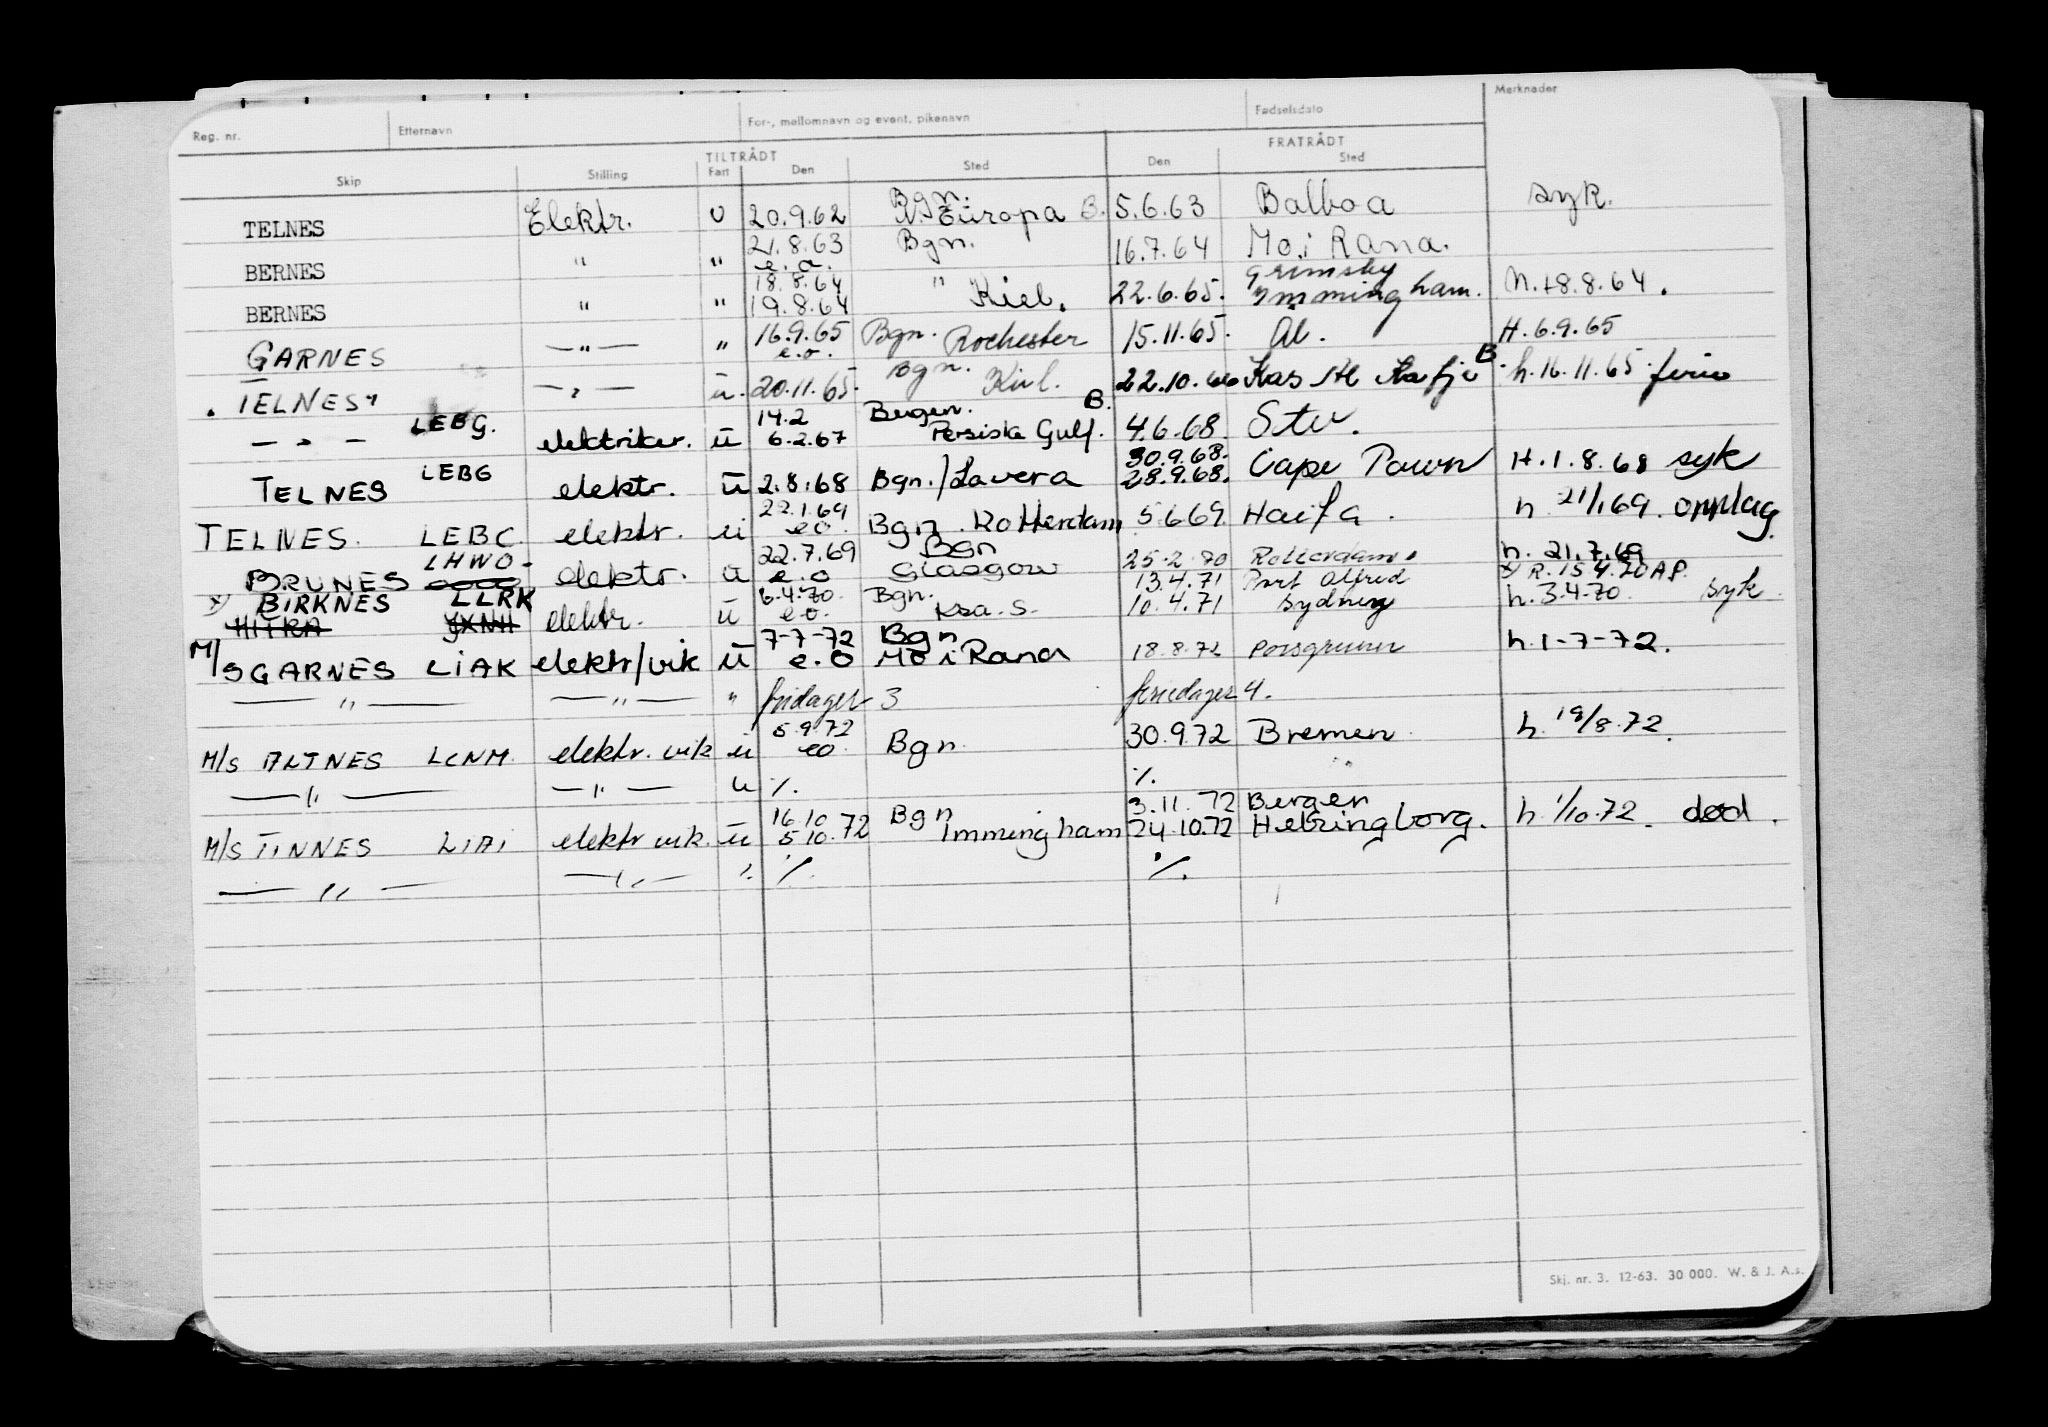 Reg. nr. Etternavn For-, mellomnavn og event. pikenavn Fødselsdato Merknader
TILTRÅDT FRATRÅDT
Skip Stilling Fart Den Sted Den Sted
Bgn.
TELNES Elektr. u 20.9.62 N. Europa B. 5.6.63 Balboa syk.
21.8.63
BERNES " " e.o. Bgn. 16.7.64 Mo i Rana.
18.8.64 Grimsby
BERNES " " 19.8.64 " Kiel. 22.6.65. Immingham. N.18.8.64.
16.9.65
GARNES —"— " e.o. Bgn. Rochester 15.11.65. H.6.9.65
Bgn.
TELNES —"— u. 20.11.65. Kiel. 22.10.66 B. h.16.11.65 ferie
14.2 Bergen. B.
— " — LEBG. elektriker. u 6.2.67 Persiske Gulf. 4.6.68. Stv.
30.9.68.
TELNES LEBG elektr. u 2.8.68 Bgn./Lavera 28.9.68. Cape Town H.1.8.68 syk
22.1.69
TELNES. LEBC. elektr. u eo. Bgn. Rotterdam 5.6.69. Haifa. h 21/1.69. opplag
LHWO. 22.7.69 Bgn h. 21.7.69
BRUNES elektr. u e.o Glasgow 25.2.70 Rotterdam.
x) BIRKNES LLRK 6.4.70. Bgn. 13.4.71 Port Alfred x) R.15.4.70 AP.
HITRA elektr. u e.o. Kra.S. 10.4.71 Sydney h.3.4.70. syk.
7-7-72 Bgn
M/S GARNES LIAK elektr/vik u e.o Mo i Rana 18.8.72 Porsgrunn h.1-7-72.
—"— —"— " fridager 3 feriedager 4.
5.9.72
M/S ALTNES LCNM. elektr. vik u eo. Bgn. 30.9.72 Bremen h. 19/8.72.
—"— —"— u %. %.
16.10 Bgn 3.11.72 Bergen
M/S TINNES LIAI elektr vik. u 5.10.72 Immingham 24.10.72 Helsingborg. h. 1/10.72. død.
—"— —"— " %. %.
Skj. nr. 3. 12-63. 30 000. W. & J. A.s.